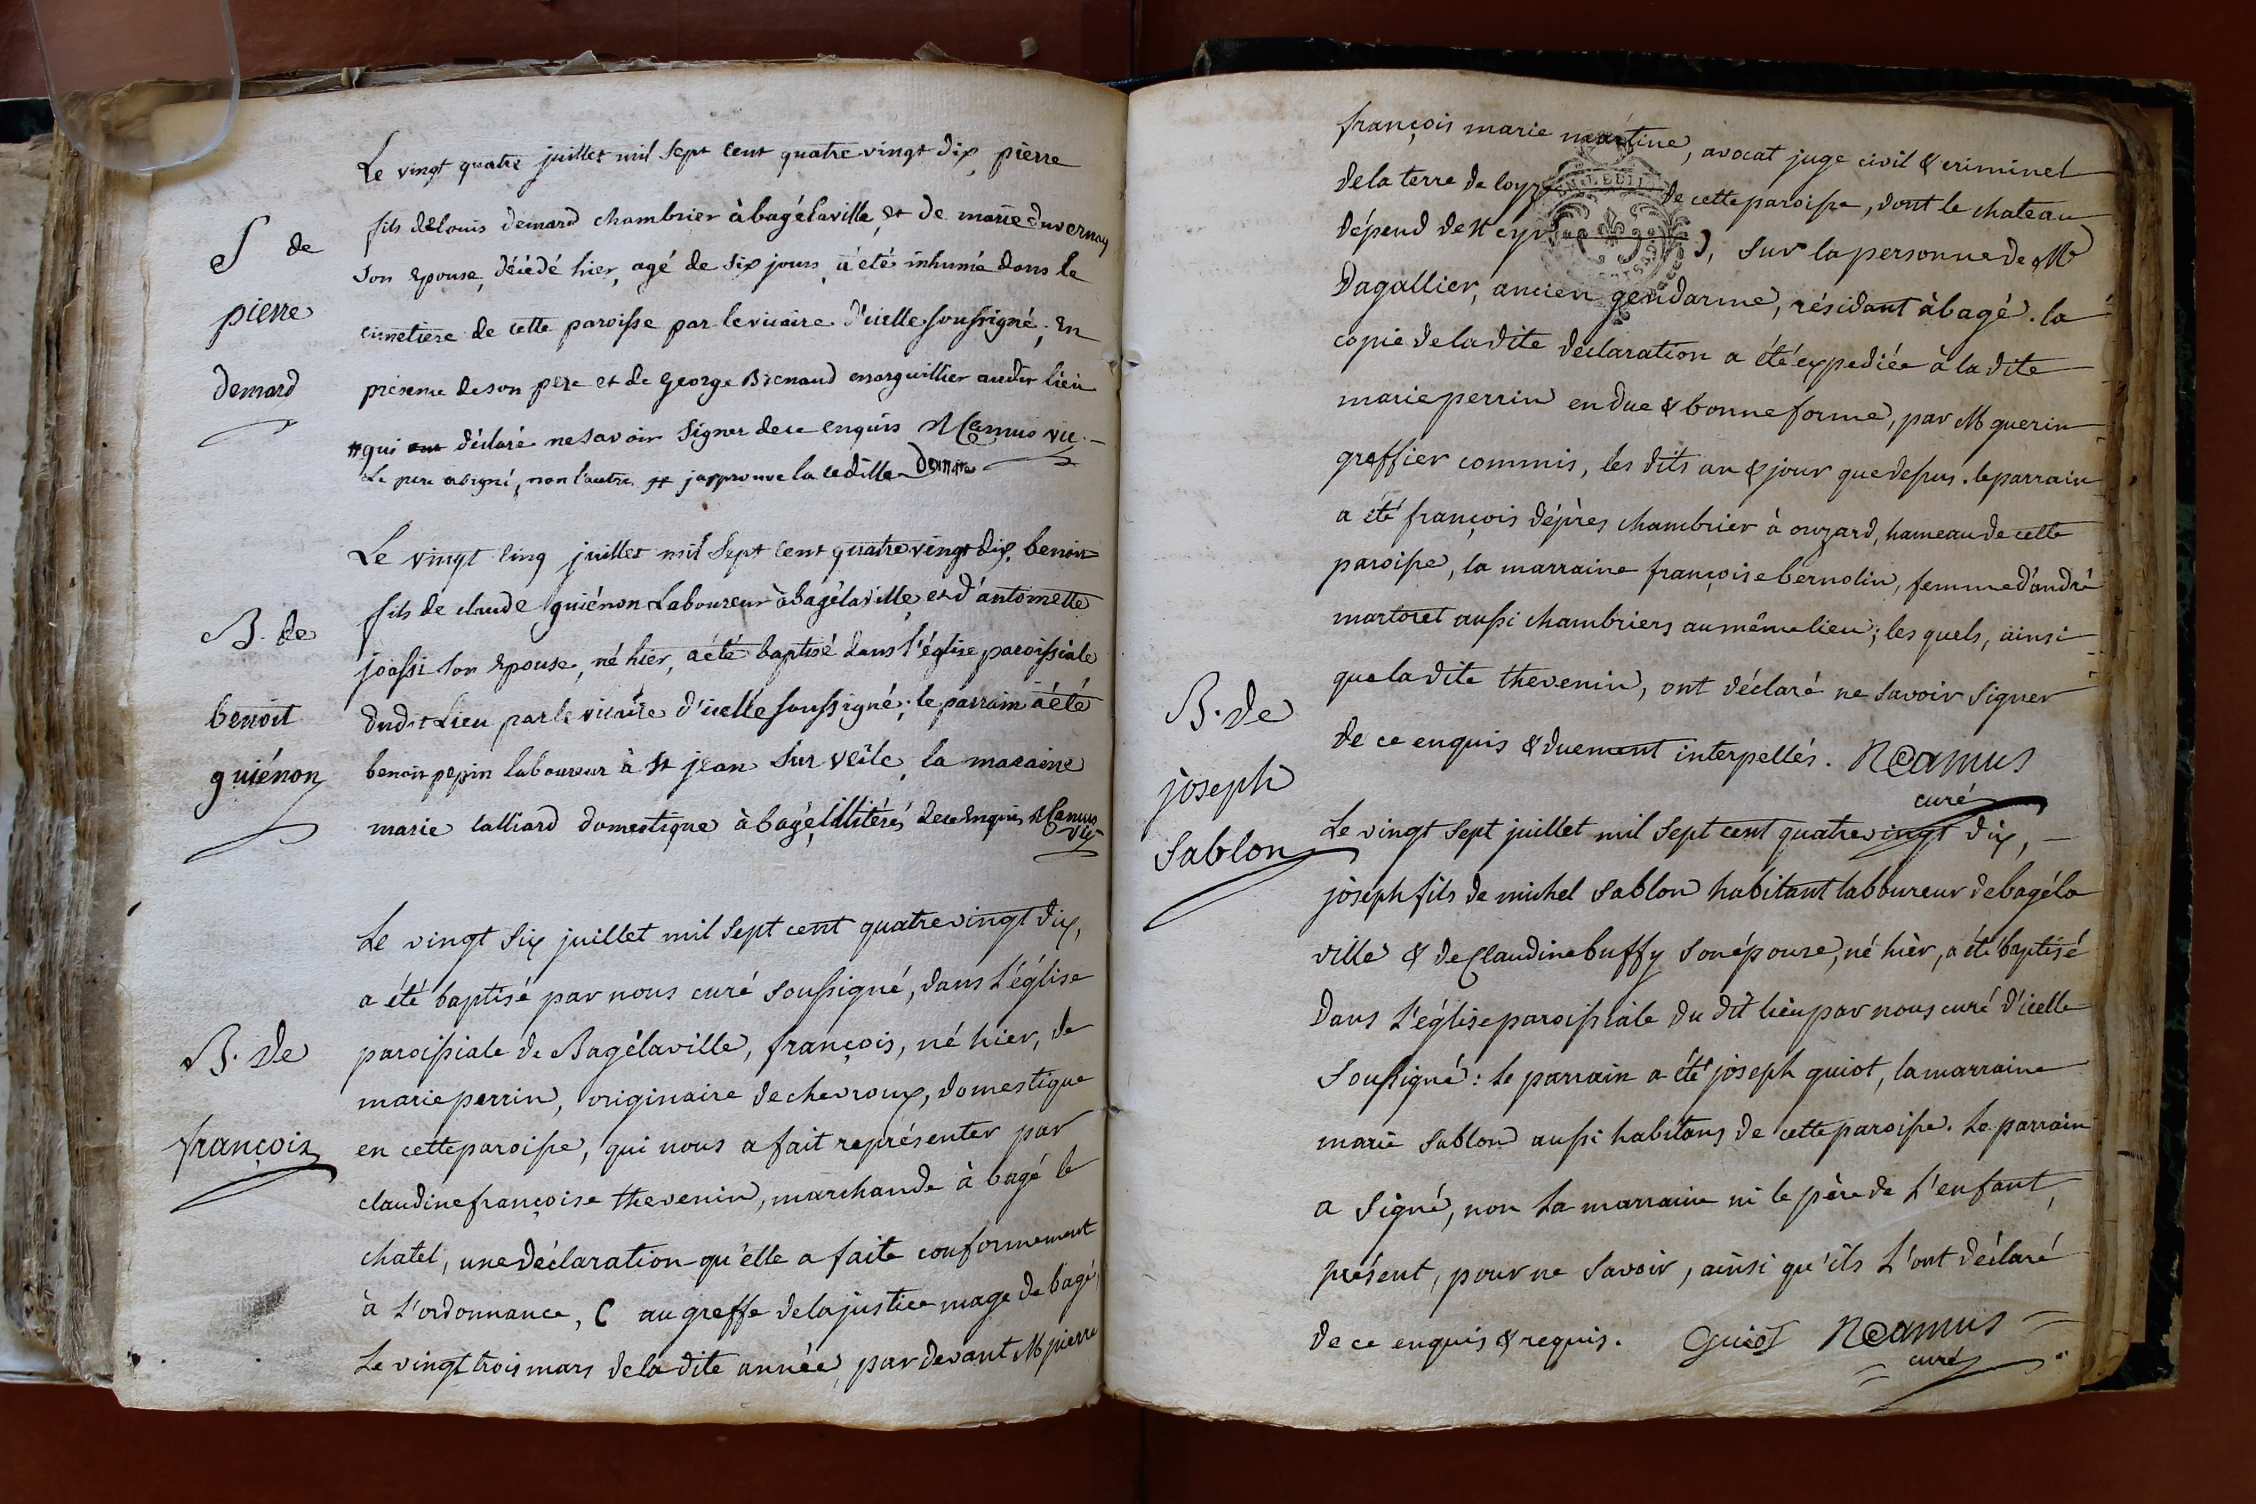 Le vingt quatre juillet mil sept cent quatre vingt dix, pierre
fils de louis demard chambrier à bagélaville, et de marie duvernay
S de
son epouse, décédé hier, agé de six jours, a été inhumé dans le
pierre
cimetiere de cette paroisse par le vicaire d'icelle soussigné, en
demard
présence de son pere et de george Brenaud marguillier audit lieu
qui ont déclaré ne savoir signer de ce enquis NCamus vic.
Le pere a signé, non l'autre j'approuve la cedille
Le vingt cinq juillet mil sept cent quatre vingt dix, benoit
fils de claude guiénon Laboureur à bagélaville et d'antoinette
B. de
joassi son epouse, né hier, a été baptisé dans l'église paroissiale
benoit
dudit Lieu par le vicaire d'icelle soussigné; le parrain a été
guiénon
benoit pepin laboureur à st jean sur veile, la maraine
marie calliard domestique à bagé, illitérés de ce enquis NCamus
vic
Le vingt six juillet mil sept cent quatre vingt dix,
a été baptisé par nous curé soussigné, dans L'église
B. de
paroissiale de Bagélaville, françois, né hier, de
marie perrin, originaire de chevroux, domestique
françois
en cette paroisse, qui nous a fait représenter par
claudine françoise thevenin, marchande à bagé le
chatel, une déclaration qu'elle a faite conformement
à L'ordonnance, au greffe de la justice mage de bagé,
Le vingt trois mars de la dite année, par devant M pierre
françois marie martine, avocat juge civil & criminel
de la terre de loyze de cette paroisse, dont le chateau
dépend de st cyr sur la personne de Mr
Dagallier, ancien gendarme, résidant à bagé. la
copie de la dite déclaration a été expediée à la dite
marie perrin en due & bonne forme, par M guerin
greffier commis, les dits an & jour que dessus. le parrain
a été françois déprès chambrier à ouzard, hameau de cette
paroisse, la marraine françoise bernolin, femme d'andré
martoret aussi chambriers au même lieu; les quels, ainsi
que la dite thevenin, ont déclaré ne savoir signer
de ce enquis & duement interpellés. NCamus
curé
B. de
joseph
Sablon
Le vingt sept juillet mil sept cent quatre vingt dix,
joseph fils de michel Sablon habitant laboureur de bagéla
ville & de Claudine buffy son épouse, né hier, a été baptisé
dans L'église paroissiale du dit lieu par nous curé d'icelle
soussigné: Le parrain a été joseph guiot, la marraine
marie Sablon aussi habitans de cette paroisse. Le parrain
a signé, non La marraine ni le père de L'enfant,
présent, pour ne savoir, ainsi qu'ils L'ont déclaré
de ce enquis & requis. Guiot NCamus
curé